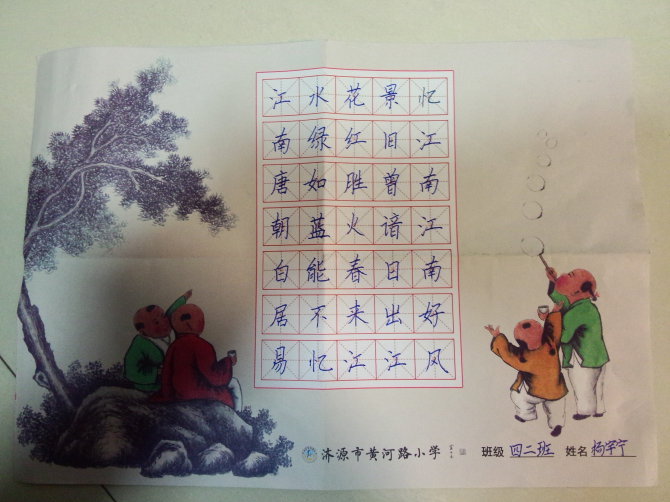 忆江南江南好风
景旧曾谙日出江
花红胜火春来江
水绿如蓝能不忆
江南唐朝白居易
济源市黄河路小学 班级 四二班 姓名 杨宇宁